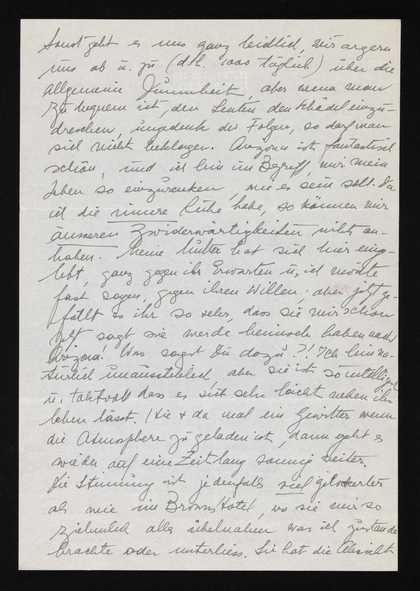 Sonst geht es uns ganz leidlich, wir ärgern
uns ab u. zu (d.h. 1000 täglich) über die
allgemeine Dummheit, aber wenn man
zu bequem ist, den Leuten den Schädel einzu-
dreschen, der Folgen, so darf man
sich nicht beklagen. Arizona ist fantastisch
schön, und ich bin im Begriff, mir mein
Leben so einzurenken, wie es sein soll. Da
ich die innere Ruhe habe, so können mir
äusseren Zwiderwärtigkeiten nichts an-
haben. Meine Mutter hat sich hier einge-
lebt, ganz gegen ihr Erwarten u. ich möchte
fast sagen, gegen ihren Willen; aber jetzt ge-
fällt es ihr so sehr, dass sie mir schon
oft sagt sie werde heimweh haben nach
Arizona! Was sagst Du dazu?! Ich bin na-
türlich unausstehlich, aber sie ist so intelligent
u. taktvoll dass es sich sehr leicht neben ihr
leben lässt. Hie & da mal ein Gewitter wenn
die Atmosphere zu geladen ist, dann geht es
wieder auf eine Zeitlang sonnig heiter.
Die Stimmung ist jedenfalls viel gelockerter
als wie im Browns Hotel, wo sie mir so
ziemlich alles übelnahm was ich zustande
brachte oder unterliess. Sie hat die Absicht